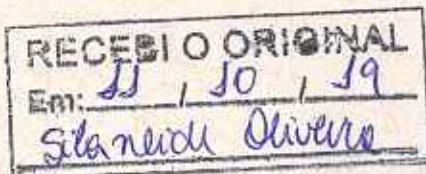 RECEBI O ORIGINAL
Em: 11 / 10 / 19
Silaneide Oliveira